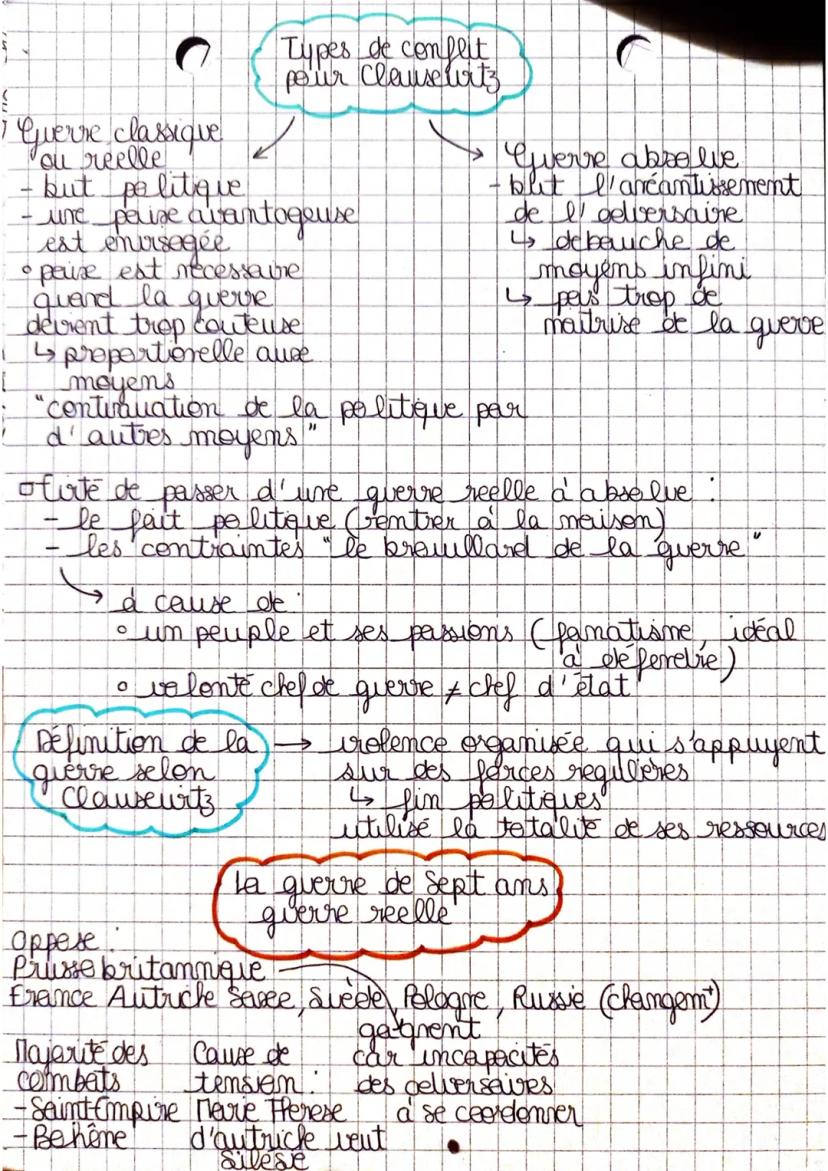 Types de conflit
pour Clausewitz
Guerre classique
ou réelle
- but politique
- une paixe avantageuse
est envisagée
° paixe est nécessaire
quand la guerre
devient trop couteuse
↳ proportionelle auxe
moyens
"continuation de la politique par
d'autres moyens"
→ Guerre absolue
- but l'anéantissement
de l'adversaire
↳ debauche de
moyens infini
↳ pas trop de
maitrise de la guerre
de passer d'une guerre reelle à absolue :
- le fait politique (rentrer à la maison)
- les contraintes "le brouillard de la guerre"
→ à cause de :
° un peuple et ses passions (fanatisme, idéal
à défendre)
° volonté chef de guerre ≠ chef d'état
Définition de la
guerre selon
Clausewitz
→ violence organisée qui s'appuyent
sur des forces regulières
↳ fin politiques
utilisé la totalité de ses ressources
La guerre de Sept ans
guerre reelle
oppose :
Prusse britannique
France Autriche Saxe, Suède, Pologne, Russie (changemt)
gagnent
car incapacités
des adversaires
à se coordonner
Majorité des
combats
- Saint-Empire
- Bohême
Cause de
tension :
Marie Therese
d'autriche veut
Silésie